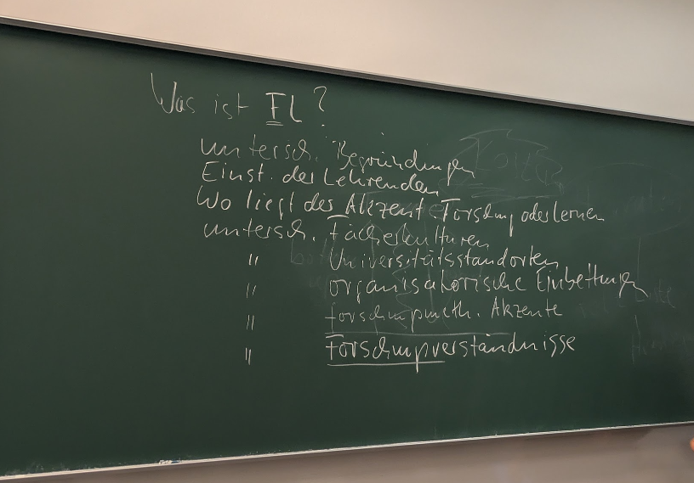 Was ist FL?
untersch. Begründungen
Einst. der Lehrenden
Wo liegt der Akzent. Forschung oder Lernen
untersch. Fächerkulturen
" Universitätsstandorten
" organisatorische Einbettungen
" forschungsmeth. Akzente
" Forschungsverständnisse